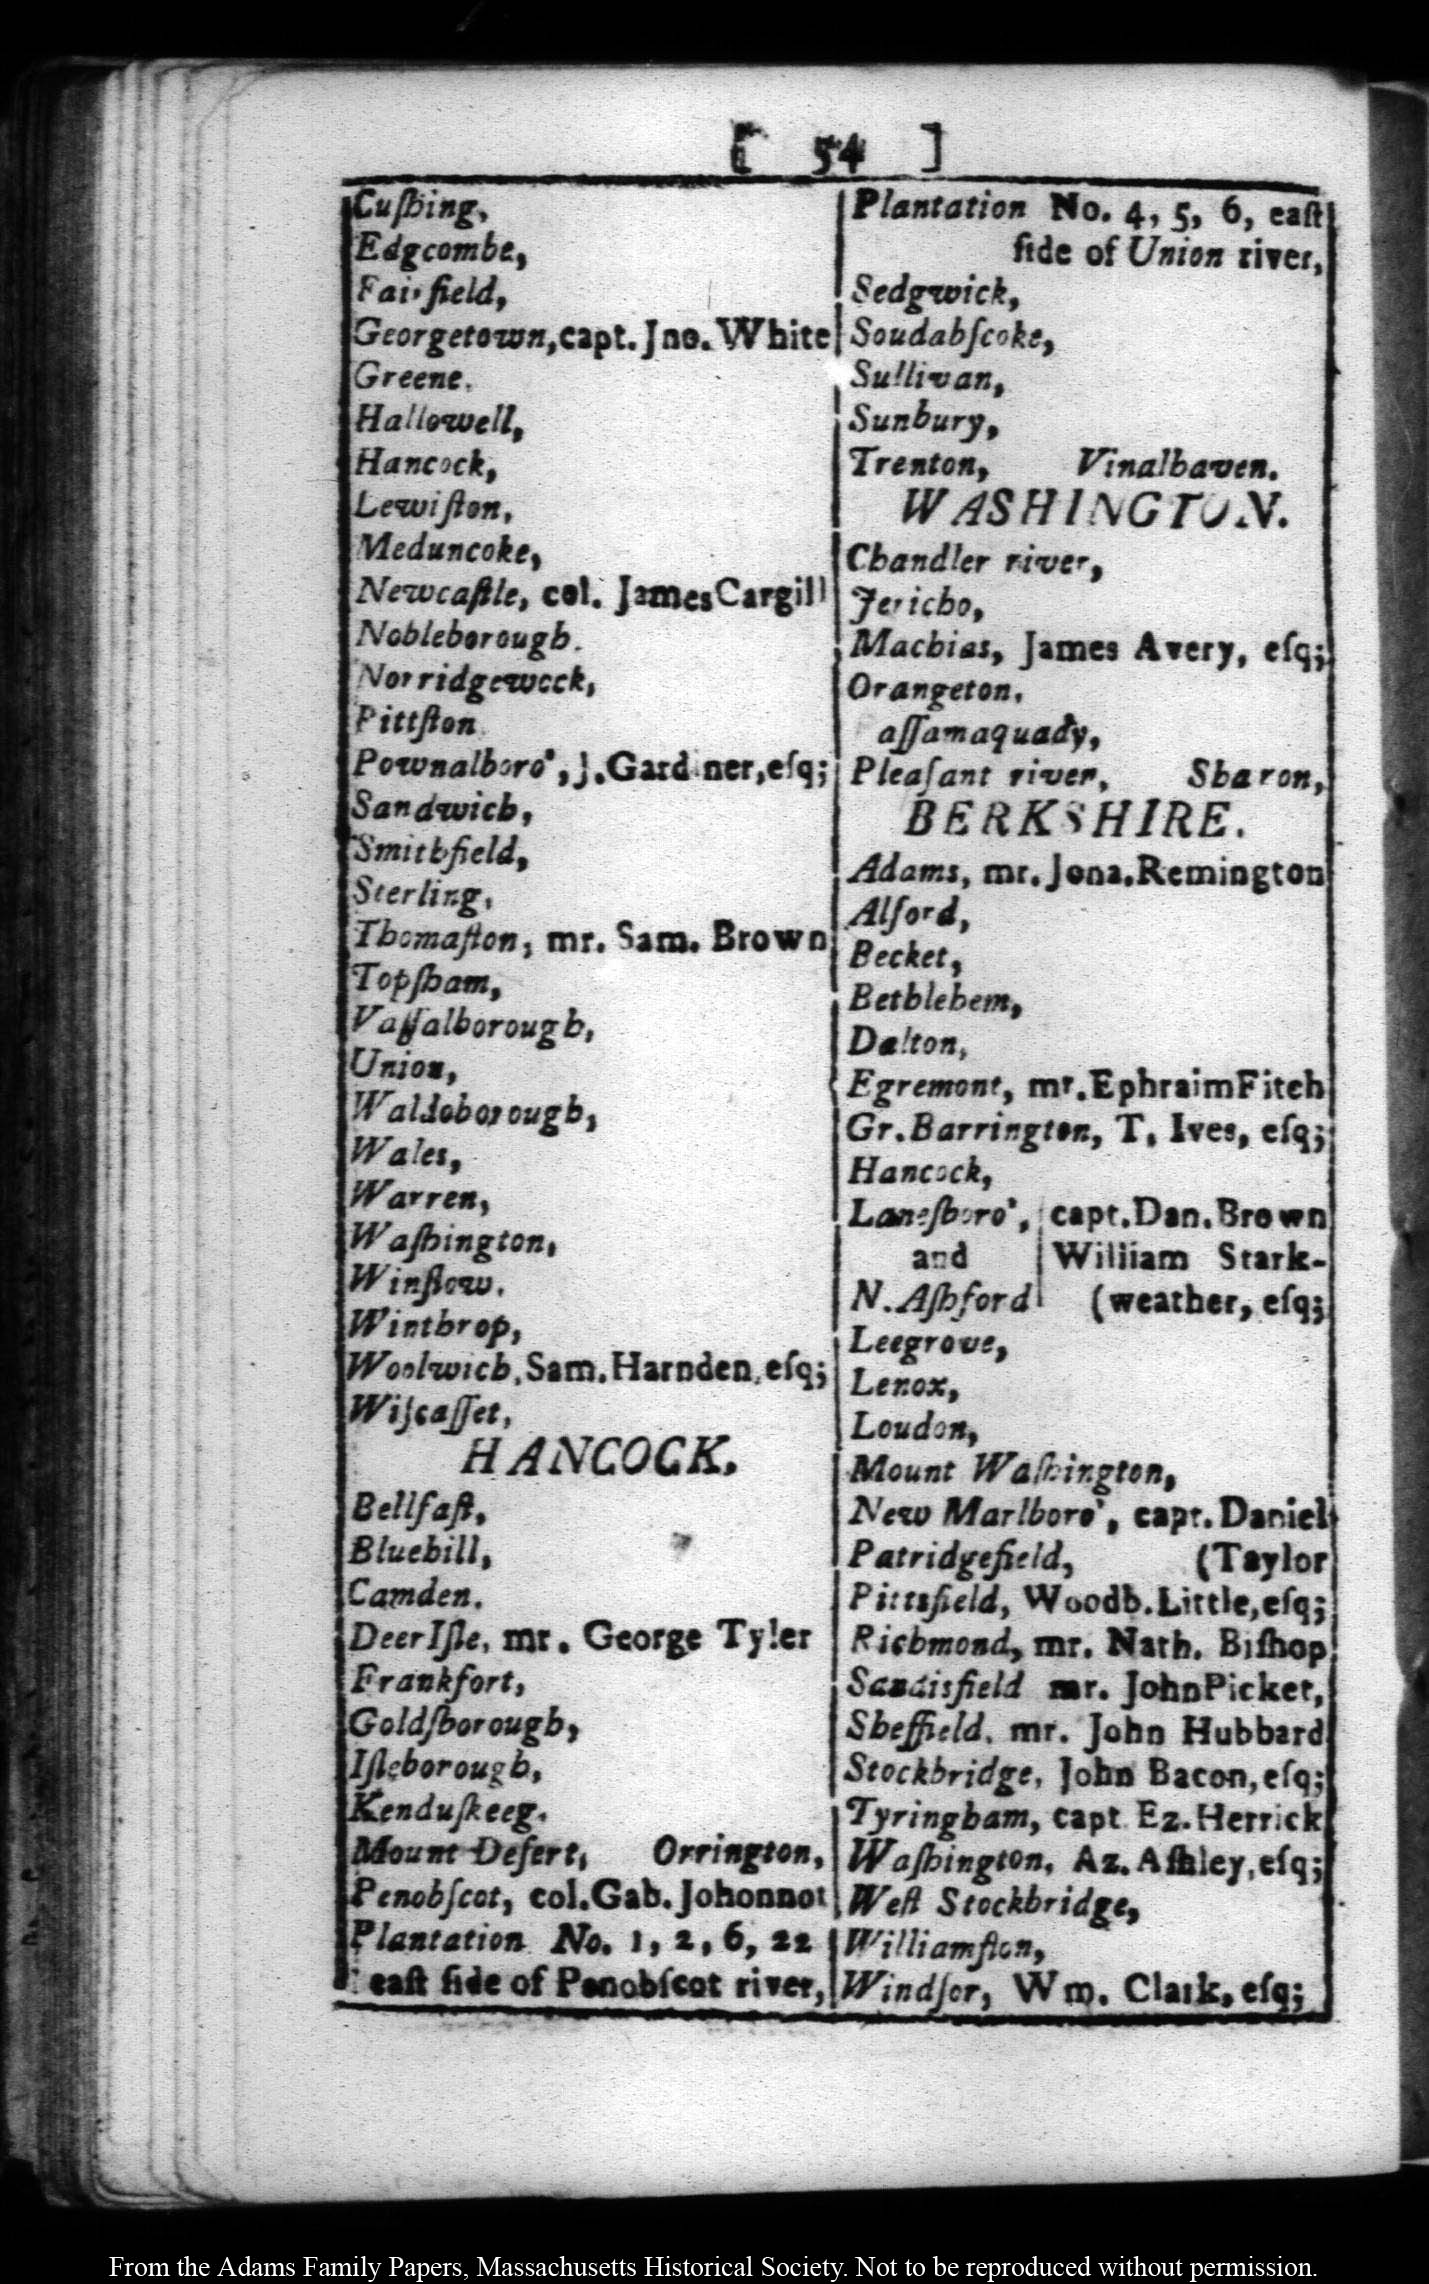 [ 54 ]
Cuſhing,
Edgcombe,
Fairfield,
Georgetown, capt. Jno. White
Greene.
Hallowell,
Hancock,
Lewiſton,
Meduncoke,
Newcaſtle, col. James Cargill
Nobleborough.
Norridgewock,
Pittſton
Pownalboro', J. Gardiner, eſq;
Sandwich,
Smithfield,
Sterling,
Thomaſton, mr. Sam. Brown
Topſham,
Vaſſalborough,
Union,
Waldoborough,
Wales,
Warren,
Waſhington,
Winſlow.
Winthrop,
Woolwich, Sam. Harnden, eſq;
Wiſcaſſet,
HANCOCK.
Bellfaſt,
Bluehill,
Camden.
Deer Iſle, mr. George Tyler
Frankfort,
Goldſborough,
Iſleborough,
Kenduſkeeg.
Mount Deſert, Orrington,
Penobſcot, col. Gab. Johonnot
Plantation No. 1, 2, 6, 22
eaſt ſide of Penobſcot river,
Plantation No. 4, 5, 6, eaſt
ſide of Union river,
Sedgwick,
Soudabſcoke,
Sullivan,
Sunbury,
Trenton, Vinalhaven.
WASHINGTON.
Chandler river,
Jericho,
Machias, James Avery, eſq;
Orangeton.
aſſamaquady,
Pleaſant river, Sharon,
BERKSHIRE.
Adams, mr. Jona. Remington
Alford,
Becket,
Bethlehem,
Dalton,
Egremont, mr. Ephraim Fitch
Gr. Barrington, T. Ives, eſq;
Hancock,
Laneſboro', capt. Dan. Brown
and William Stark-
N. Aſhford (weather, eſq;
Leegrove,
Lenox,
Loudon,
Mount Waſhington,
New Marlboro', capt. Daniel
Patridgefield, (Taylor
Pittsfield, Woodb. Little, eſq;
Richmond, mr. Nath. Biſhop
Sandisfield mr. John Picket,
Sheffield, mr. John Hubbard
Stockbridge, John Bacon, eſq;
Tyringham, capt Ez. Herrick
Waſhington, Az. Aſhley, eſq;
Weſt Stockbridge,
Williamſton,
Windſor, Wm. Clark, eſq;
From the Adams Family Papers, Massachusetts Historical Society. Not to be reproduced without permission.